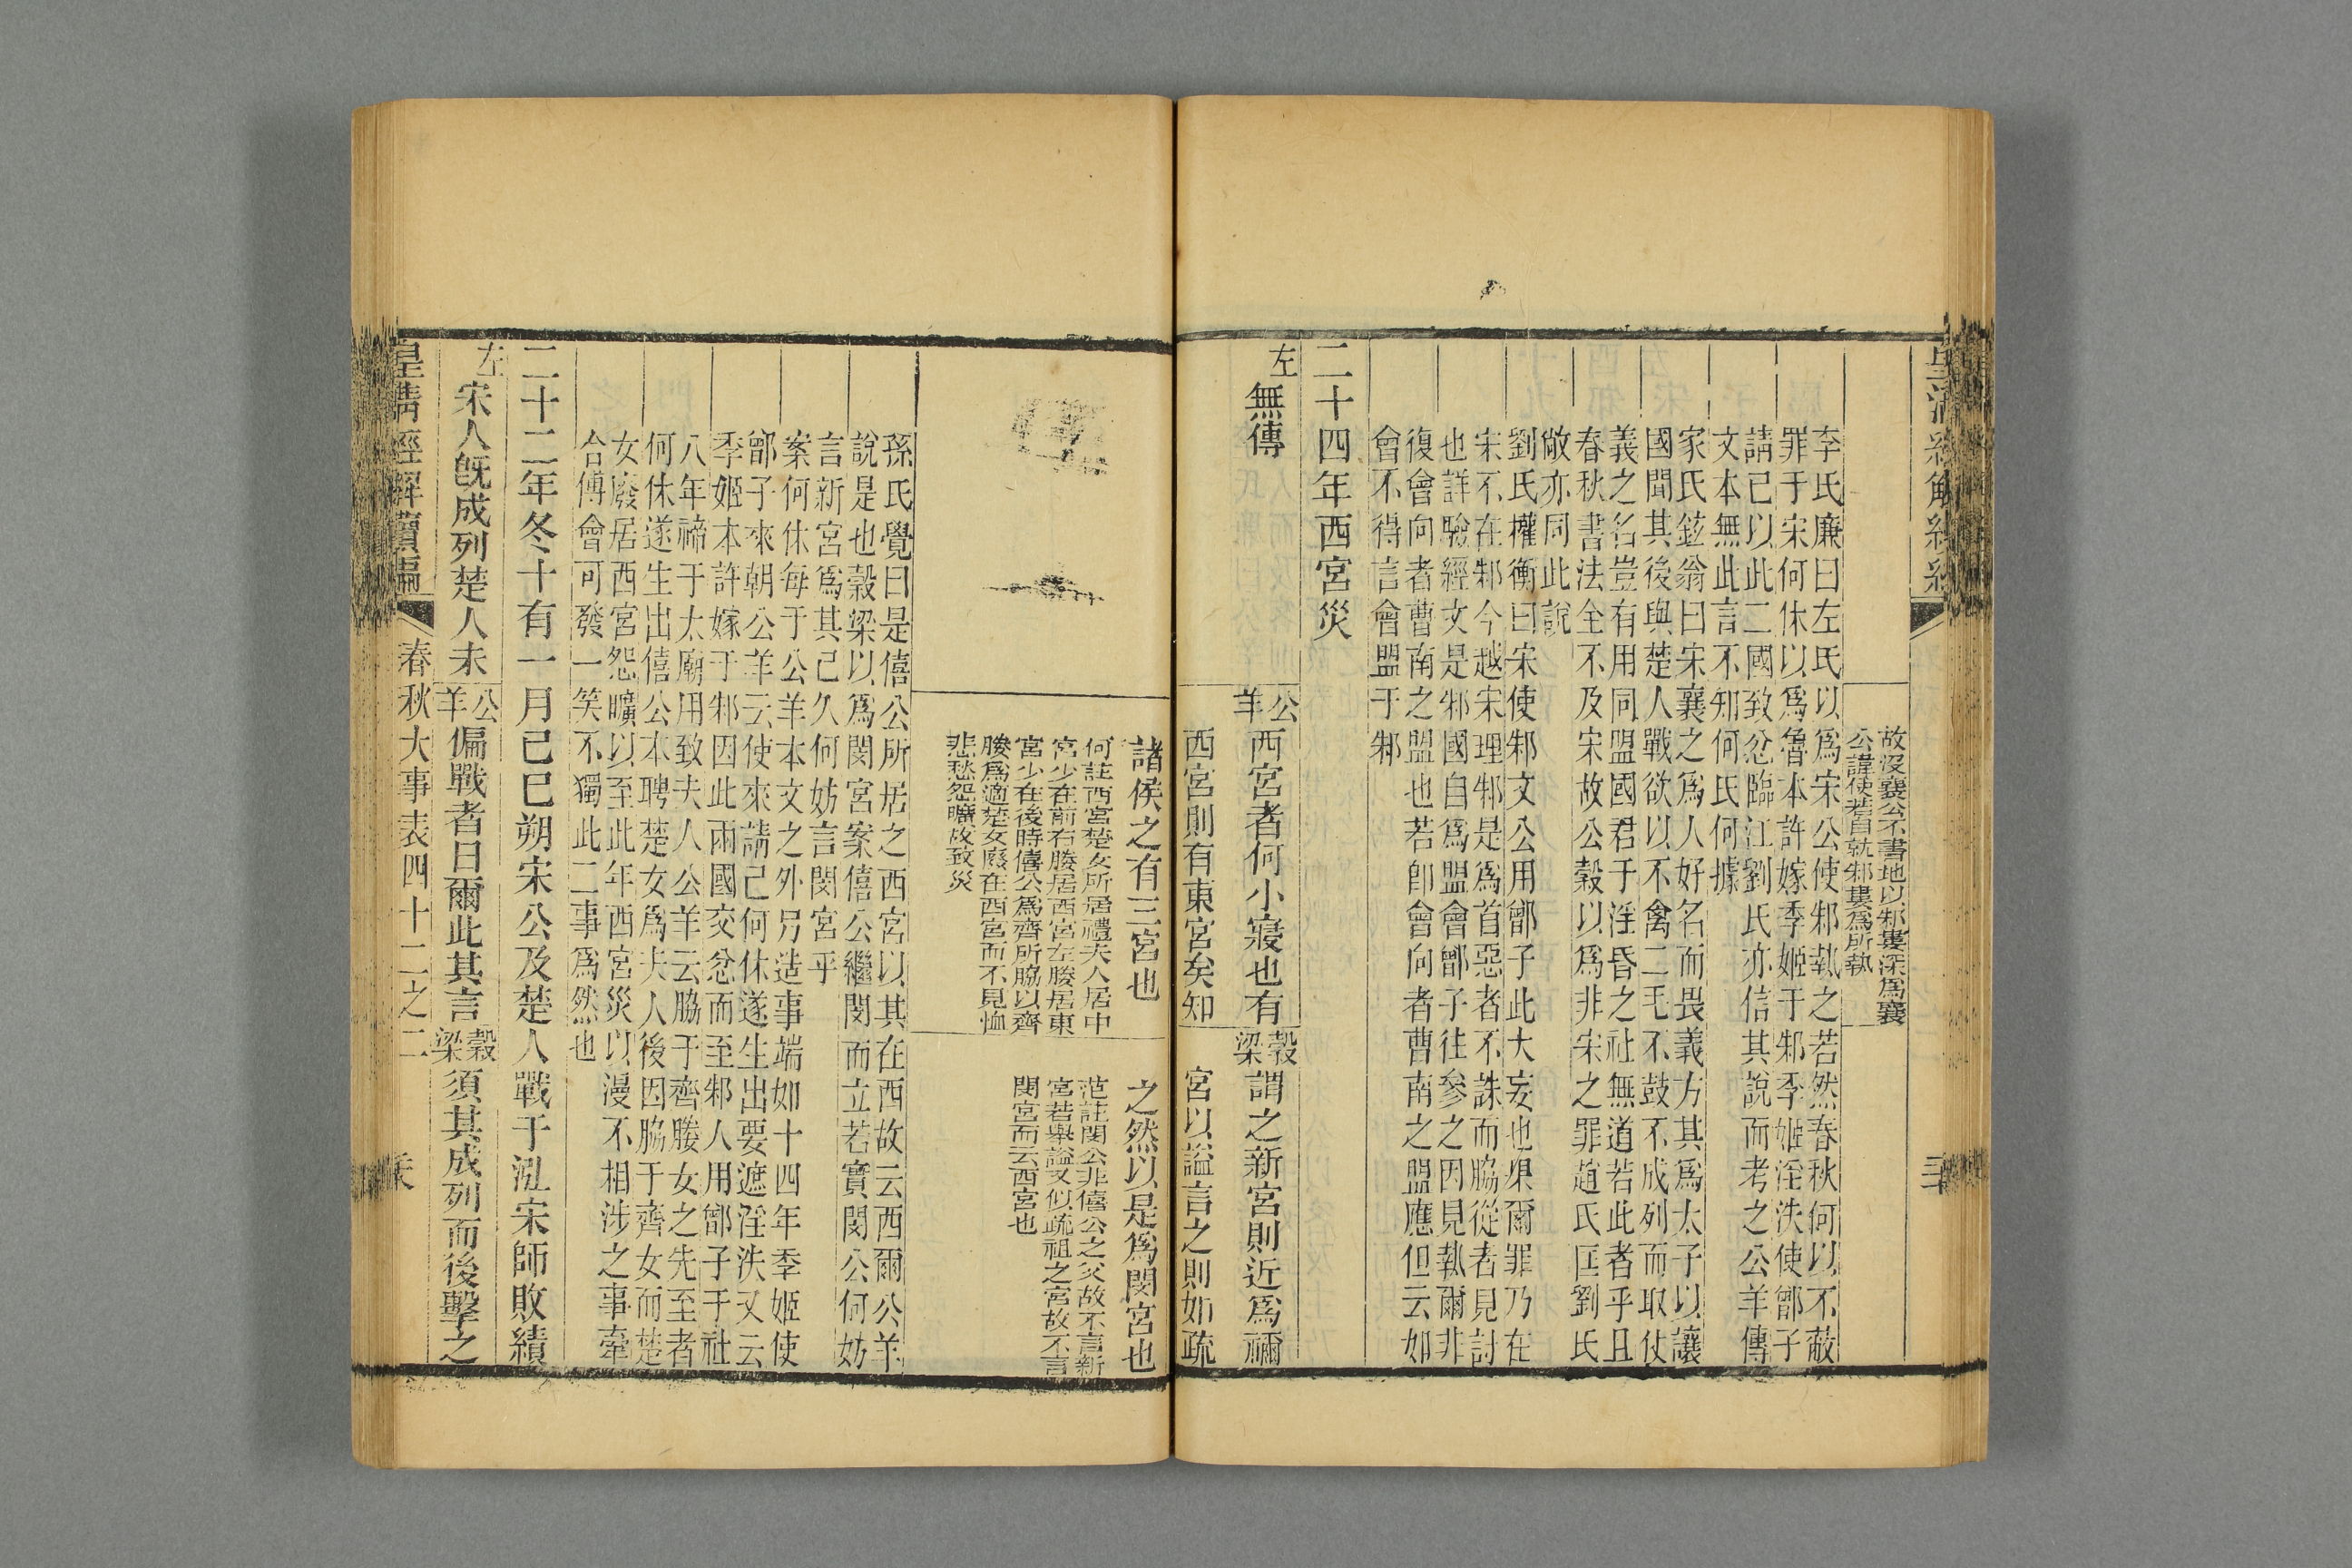 故沒襄公不書地以邾婁深爲襄
公諱使若自就邾婁爲所執
李氏廉曰左氏以爲宋公使邾執之若然春秋何以不蔽
罪于宋何休以爲魯本許嫁季姬于邾季姬淫泆使鄫子
請己以此二國致忿臨江劉氏亦信其說而考之公羊傳
文本無此言不知何氏何據
家氏鉉翁曰宋襄之爲人好名而畏義方其爲太子以讓
國聞其後與楚人戰欲以不禽二毛不鼓不成列而取仗
義之名豈有用同盟國君于淫昏之社無道若此者乎且
春秋書法全不及宋故公穀以爲非宋之罪趙氏匡劉氏
敞亦同此說
劉氏權衡曰宋使邾文公用鄫子此大妄也果爾罪乃在
宋不在邾今越宋理邾是爲首惡者不誅而脇從者見討
也詳驗經文是邾國自爲盟會鄫子往參之因見執爾非
復會向者曹南之盟也若卽會向者曹南之盟應但云如
會不得言會盟于邾
二十四年西宮災
左 無傳
公羊 西宮者何小寢也有
西宮則有東宮矣知
穀梁 謂之新宮則近爲禰
宮以謚言之則如疏
諸侯之有三宮也
何註西宮楚女所居禮夫人居中
宮少在前右媵居西宮左媵居東
宮少在後時僖公爲齊所脇以齊
媵爲適楚女廢在西宮而不見恤
悲愁怨曠故致災
之然以是爲閔宮也
范註閔公非僖公之父故不言新
宮若舉謚又似疏祖之宮故不言
閔宮而云西宮也
孫氏覺曰是僖公所居之西宮以其在西故云西爾公羊
說是也穀梁以爲閔宮案僖公繼閔而立若實閔公何妨
言新宮爲其已久何妨言閔宮乎
案何休每于公羊本文之外另造事端如十四年季姬使
鄫子來朝公羊云使來請己何休遂生出要遮淫泆又云
季姬本許嫁于邾因此兩國交忿而至邾人用鄫子于社
八年禘于太廟用致夫人公羊云脇于齊媵女之先至者
何休遂生出僖公本聘楚女爲夫人後因脇于齊女而楚
女廢居西宮怨曠以至此年西宮災以漫不相涉之事牽
合傅會可發一笑不獨此二事爲然也
二十二年冬十有一月己巳朔宋公及楚人戰于泓宋師敗績
左 宋人旣成列楚人未
公羊 偏戰者日爾此其言
穀梁 須其成列而後擊之
皇清經解續編 春秋大事表四十二之二